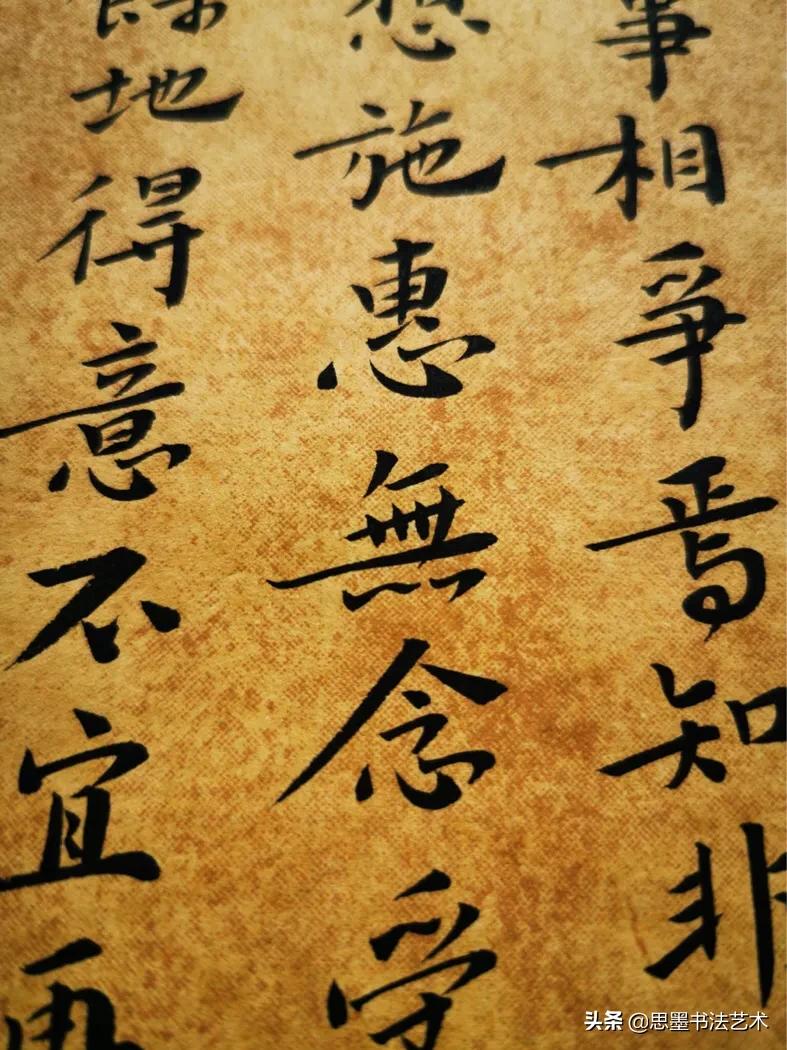 事相爭焉知非
想施惠無念受
餘地得意不宜再
头条 @思墨书法艺术